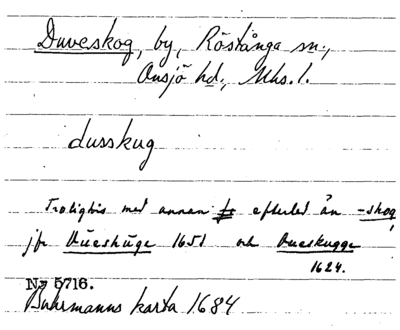 Duveskog, by, Röstånga sn.,
Onsjö hd., Mhs. l.
dusskug
Troligtvis med annan efterled än -skog,
jfr Dueskuge 1651 och Dueskugge
1624.
No 5716.
Buhrmanns karta 1684